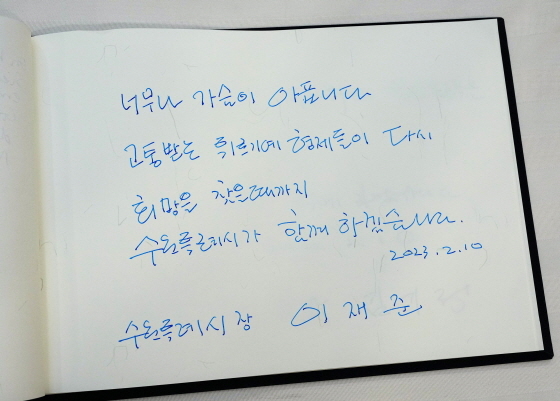 너무나 가슴이 아픕니다
고통받는 튀르키예 형제들이 다시
희망을 찾을때까지
수원특례시가 함께 하겠습니다.
2023.2.10
수원특례시장 이재준